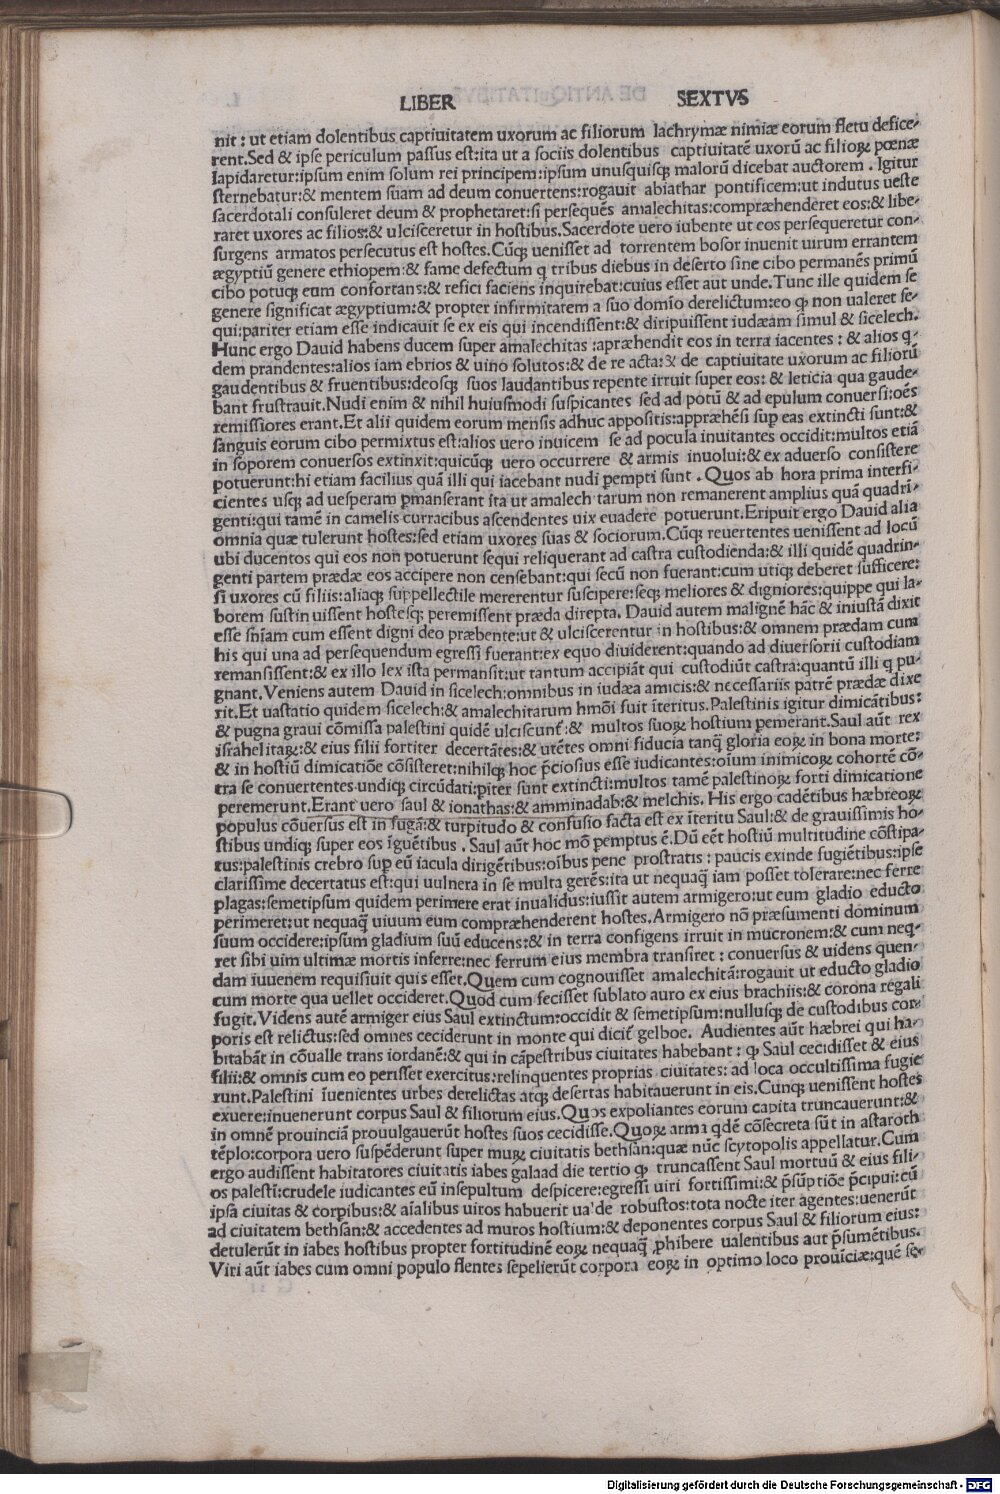 LIBER SEXTVS
nit : ut etiam dolentibus captiuitatem uxorum ac filiorum lachrymæ nimiæ eorum fletu defice-
rent.Sed & ipse periculum passus est:ita ut a sociis dolentibus captiuitatē uxorū ac filioꝝ pœnæ
lapidaretur:ipsum enim solum rei principem:ipsum unusquisqꝫ malorū dicebat auctorem . Igitur
sternebatur:& mentem suam ad deum conuertens:rogauit abiathar pontificem:ut indutus ueste
sacerdotali consuleret deum & prophetaret:si persequēs amalechitas:compræhenderet eos:& libe-
raret uxores ac filios:& ulcisceretur in hostibus.Sacerdote uero iubente ut eos persequeretur con-
surgens armatos persecutus est hostes.Cūqꝫ uenisset ad torrentem bosor inuenit uirum errantem
ægyptiū genere ethiopem:& fame defectum q tribus diebus in deserto sine cibo permanēs primū
cibo potuqꝫ eum confortans:& refici faciens inquirebat:cuius esset aut unde.Tunc ille quidem se
genere significat ægyptium:& propter infirmitatem a suo domīo derelictum:eo ꝙ non ualeret se-
qui:pariter etiam esse indicauit se ex eis qui incendissent:& diripuissent iudæam simul & sicelech.
Hunc ergo Dauid habens ducem super amalechitas :apræhendit eos in terra iacentes : & alios q-
dem prandentes:alios iam ebrios & uino solutos:& de re acta:& de captiuitate uxorum ac filiorū
gaudentibus & fruentibus:deosqꝫ suos laudantibus repente irruit super eos: & leticia qua gaude-
bant frustrauit.Nudi enim & nihil huiusmodi suspicantes sed ad potū & ad epulum conuersi:oēs
remissiores erant.Et alii quidem eorum mensis adhuc appositis:appræhēsi sup eas extincti sunt:&
sanguis eorum cibo permixtus est:alios uero inuicem se ad pocula inuitantes occidit:multos etiā
in soporem conuersos extinxit:quicūqꝫ uero occurrere & armis inuolui:& ex aduerso consistere
potuerunt:hi etiam facilius quā illi qui iacebant nudi ꝑempti sunt . Quos ab hora prima interfi-
cientes usqꝫ ad uesperam ꝑmanserant ita ut amalechitarum non remanerent amplius quā quadri-
genti:qui tamē in camelis curracibus ascendentes uix euadere potuerunt.Eripuit ergo Dauid alia
omnia quæ tulerunt hostes:sed etiam uxores suas & sociorum.Cūqꝫ reuertentes uenissent ad locū
ubi ducentos qui eos non potuerunt sequi reliquerant ad castra custodienda:& illi quidē quadrin-
genti partem prædæ eos accipere non censebant:qui secū non fuerant:cum utiqꝫ deberet sufficere:
si uxores cū filiis:aliaqꝫ suppellectile mererentur suscipere:seqꝫ meliores & digniores:quippe qui la-
borem sustin uissent hostesqꝫ peremissent præda direpta. Dauid autem malignē hāc & iniustā dixit
esse sn̄iam cum essent digni deo præbente:ut & ulciscerentur in hostibus:& omnem prædam cum
his qui una ad persequendum egressi fuerant:ex equo diuiderent:quando ad diuersorii custodiam
remansissent:& ex illo lex ista permansit:ut tantum accipiāt qui custodiūt castra:quantū illi q pu-
gnant.Veniens autem Dauid in sicelech:omnibus in iudæa amicis:& necessariis patrē prædæ dixe
rit.Et uastatio quidem sicelech:& amalechitarum hmōi fuit īteritus.Palestinis igitur dimicātibus:
& pugna graui cōmissa palestini quidē ulciscunt̄:& multos suoꝝ hostium ꝑemerant.Saul aūt rex
israhelitaꝝ:& eius filii fortiter decertātes:& utētes omni fiducia tanq̄ gloria eoꝝ in bona morte:
& in hostiū dimicatiōe cōsisteret:nihilqꝫ hoc p̄ciosius esse iudicantes:oīum inimicoꝝ cohortē cō-
tra se conuertentes undiqꝫ circūdati:ꝑiter sunt extincti:multos tamē palestinoꝝ forti dimicatione
peremerunt.Erant uero saul & ionathas:& amminadab:& melchis. His ergo cadētibus hæbreoꝝ
populus cōuersus est in fugā:& turpitudo & confusio facta est ex īteritu Saul:& de grauissimis ho-
stibus undiqꝫ super eos īguētibus . Saul aūt hoc mō ꝑemptus ē.Dū eēt hostiū multitudine cōstipa-
tus:palestinis crebro sup eū iacula dirigētibus:oībus pene prostratis : paucis exinde fugiētibus:ipse
clarissime decertatus est:qui uulnera in se multa gerēs:ita ut nequaq̄ iam posset tolerare:nec ferre
plagas:semetipsum quidem perimere erat inualidus:iussit autem armigero:ut eum gladio educto
perimeret:ut nequaq̄ uiuum eum compræhenderent hostes.Armigero nō præsumenti dominum
suum occidere:ipsum gladium suū educens:& in terra configens irruit in mucronem:& cum neq-
ret sibi uim ultimæ mortis inferre:nec ferrum eius membra transiret : conuersus & uidens quen-
dam iuuenem requisiuit quis esset.Quem cum cognouisset amalechitā:rogauit ut educto gladio
cum morte qua uellet occideret.Quod cum fecisset sublato auro ex eius brachiis:& corona regali
fugit.Videns autē armiger eius Saul extinctum:occidit & semetipsum:nullusqꝫ de custodibus cor-
poris est relictus:sed omnes ceciderunt in monte qui dicit̄ gelboe. Audientes aūt hæbrei qui ha-
bitabāt in cōualle trans iordanē:& qui in cāpestribus ciuitates habebant : ꝙ Saul cecidisset & eius
filii:& omnis cum eo perisset exercitus:relinquentes proprias ciuitates: ad loca occultissima fugie
runt.Palestini īuenientes urbes derelictas atqꝫ desertas habitauerunt in eis.Cunqꝫ uenissent hostes
exuere:inuenerunt corpus Saul & filiorum eius.Quos expoliantes eorum capita truncauerunt:&
in omnē prouinciā prouulgauerūt hostes suos cecidisse.Quoꝝ arma qdē cōsecreta sūt in astaroth
tēplo:corpora uero suspēderunt super muꝝ ciuitatis bethsan:quæ nūc scytopolis appellatur.Cum
ergo audissent habitatores ciuitatis iabes galaad die tertio ꝙ truncassent Saul mortuū & eius fili-
os palestī:crudele iudicantes eū insepultum despicere:egressi uiri fortissimi:& p̄sūptiōe p̄cipui:cū
ipsa ciuitas & corpibus:& aīalibus uiros habuerit ualde robustos:tota nocte iter agentes:uenerūt
ad ciuitatem bethsan:& accedentes ad muros hostium:& deponentes corpus Saul & filiorum eius:
detulerūt in iabes hostibus propter fortitudinē eoꝝ nequaq̄ ꝓhibere ualentibus aut p̄sumētibus.
Viri aūt iabes cum omni populo flentes sepelierūt corpora eoꝝ in optimo loco prouīciæ:quē se-
Digitalisierung gefördert durch die Deutsche Forschungsgemeinschaft - DFG